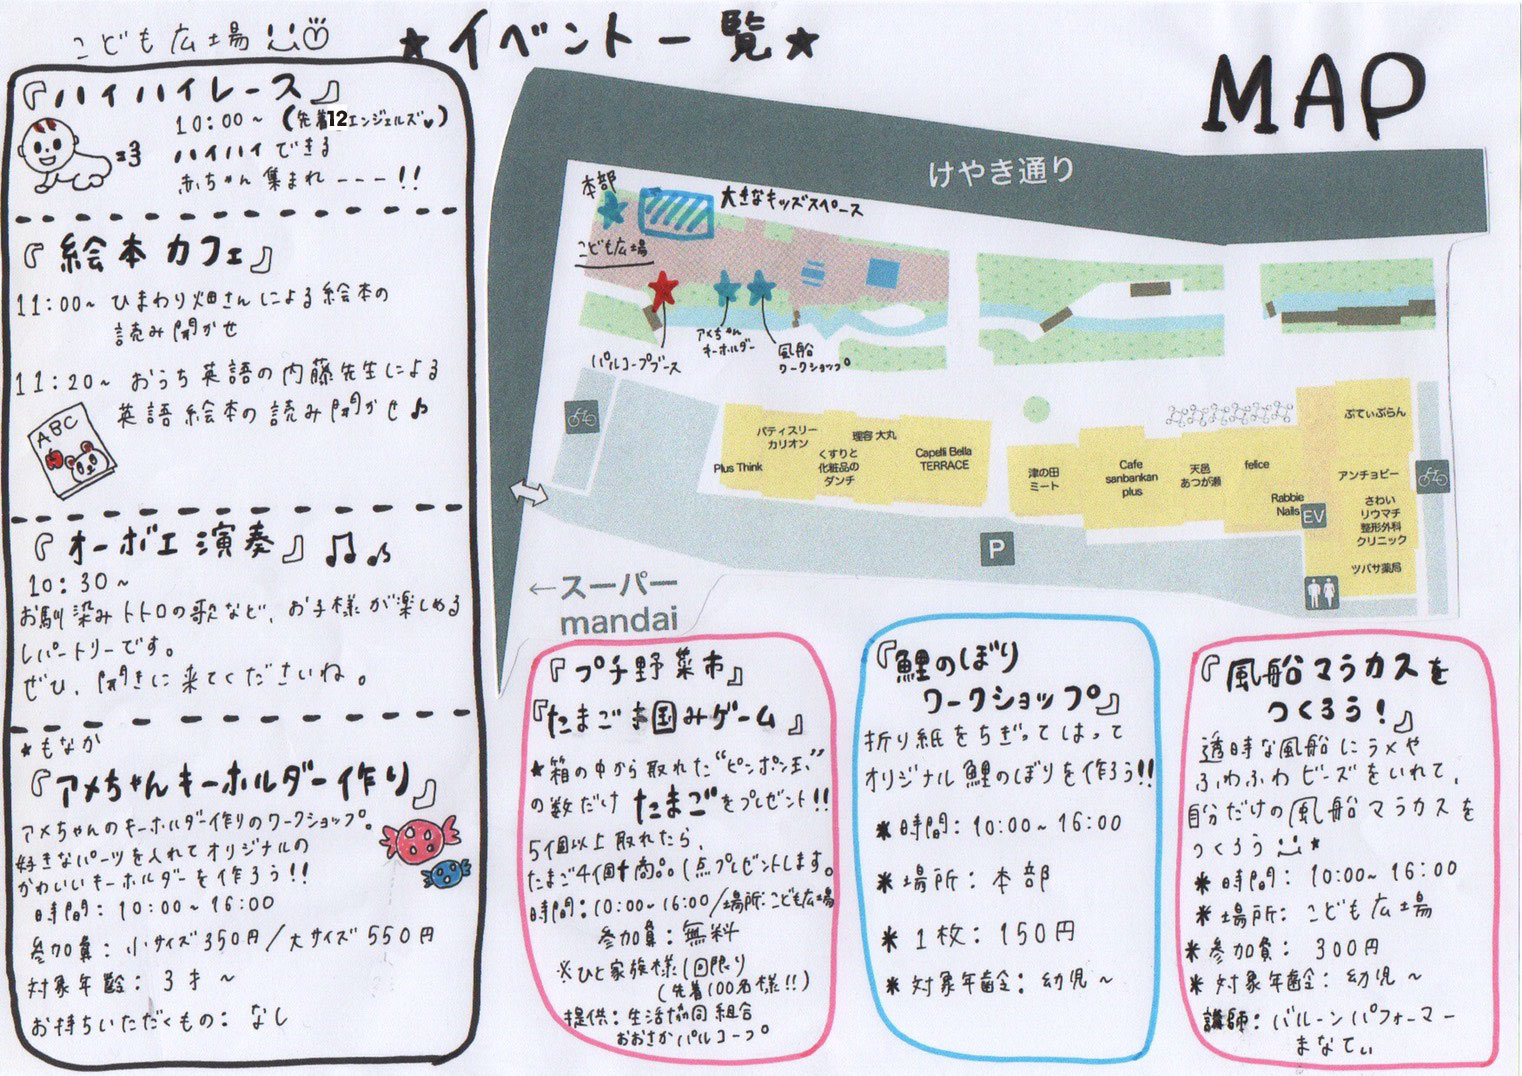 こども広場
★イベント一覧★
MAP
『ハイハイレース』
10:00~ (先着12エンジェルズ♥)
ハイハイできる
赤ちゃん集まれーーー!!
『絵本カフェ』
11:00~ ひまわり畑さんによる絵本の
読み聞かせ
11:20~ おうち英語の内藤先生による
英語絵本の読み聞かせ♪
ABC
『オーボエ演奏』♫♪
10:30~
お馴染みトトロの歌など、お子様が楽しめる
レパートリーです。
ぜひ、聞きに来てくださいね。
★もなか
『アメちゃんキーホルダー作り』
アメちゃんのキーホルダー作りのワークショップ。
好きなパーツを入れてオリジナルの
かわいいキーホルダーを作ろう!!
時間:10:00~16:00
参加費:小サイズ350円/大サイズ550円
対象年齢:3才~
お持ちいただくもの:なし
けやき通り
本部
大きなキッズスペース
こども広場
パルコープブース
アメちゃん
キーホルダー
風船
ワークショップ
Plus Think
パティスリー
カリオン
くすりと
化粧品の
ダンチ
理容 大丸
Capelli Bella
TERRACE
津の田
ミート
Cafe
sanbankan
plus
天邑
あつが瀬
felice
Rabbie
Nails
EV
ぷてぃぷらん
アンチョビー
さわい
リウマチ
整形外科
クリニック
ツバサ薬局
P
←スーパー
mandai
『プチ野菜市』
『たまごつかみゲーム』
★箱の中から取れた“ピンポン玉”
の数だけたまごをプレゼント!!
5個以上取れたら、
たまご4個+商品1点プレゼントします。
時間:10:00~16:00/場所:こども広場
参加費:無料
※ひと家族様1回限り
(先着100名様!!)
提供:生活協同組合
おおさかパルコープ
『鯉のぼり
ワークショップ』
折り紙をちぎってはって
オリジナル鯉のぼりを作ろう!!
*時間:10:00~16:00
*場所:本部
*1枚:150円
*対象年齢:幼児~
『風船マラカスを
つくろう!』
透明な風船にラメや
ふわふわビーズをいれて、
自分だけの風船マラカスを
つくろう★
*時間:10:00~16:00
*場所:こども広場
*参加費:300円
*対象年齢:幼児~
講師:バルーンパフォーマー
まなてぃ